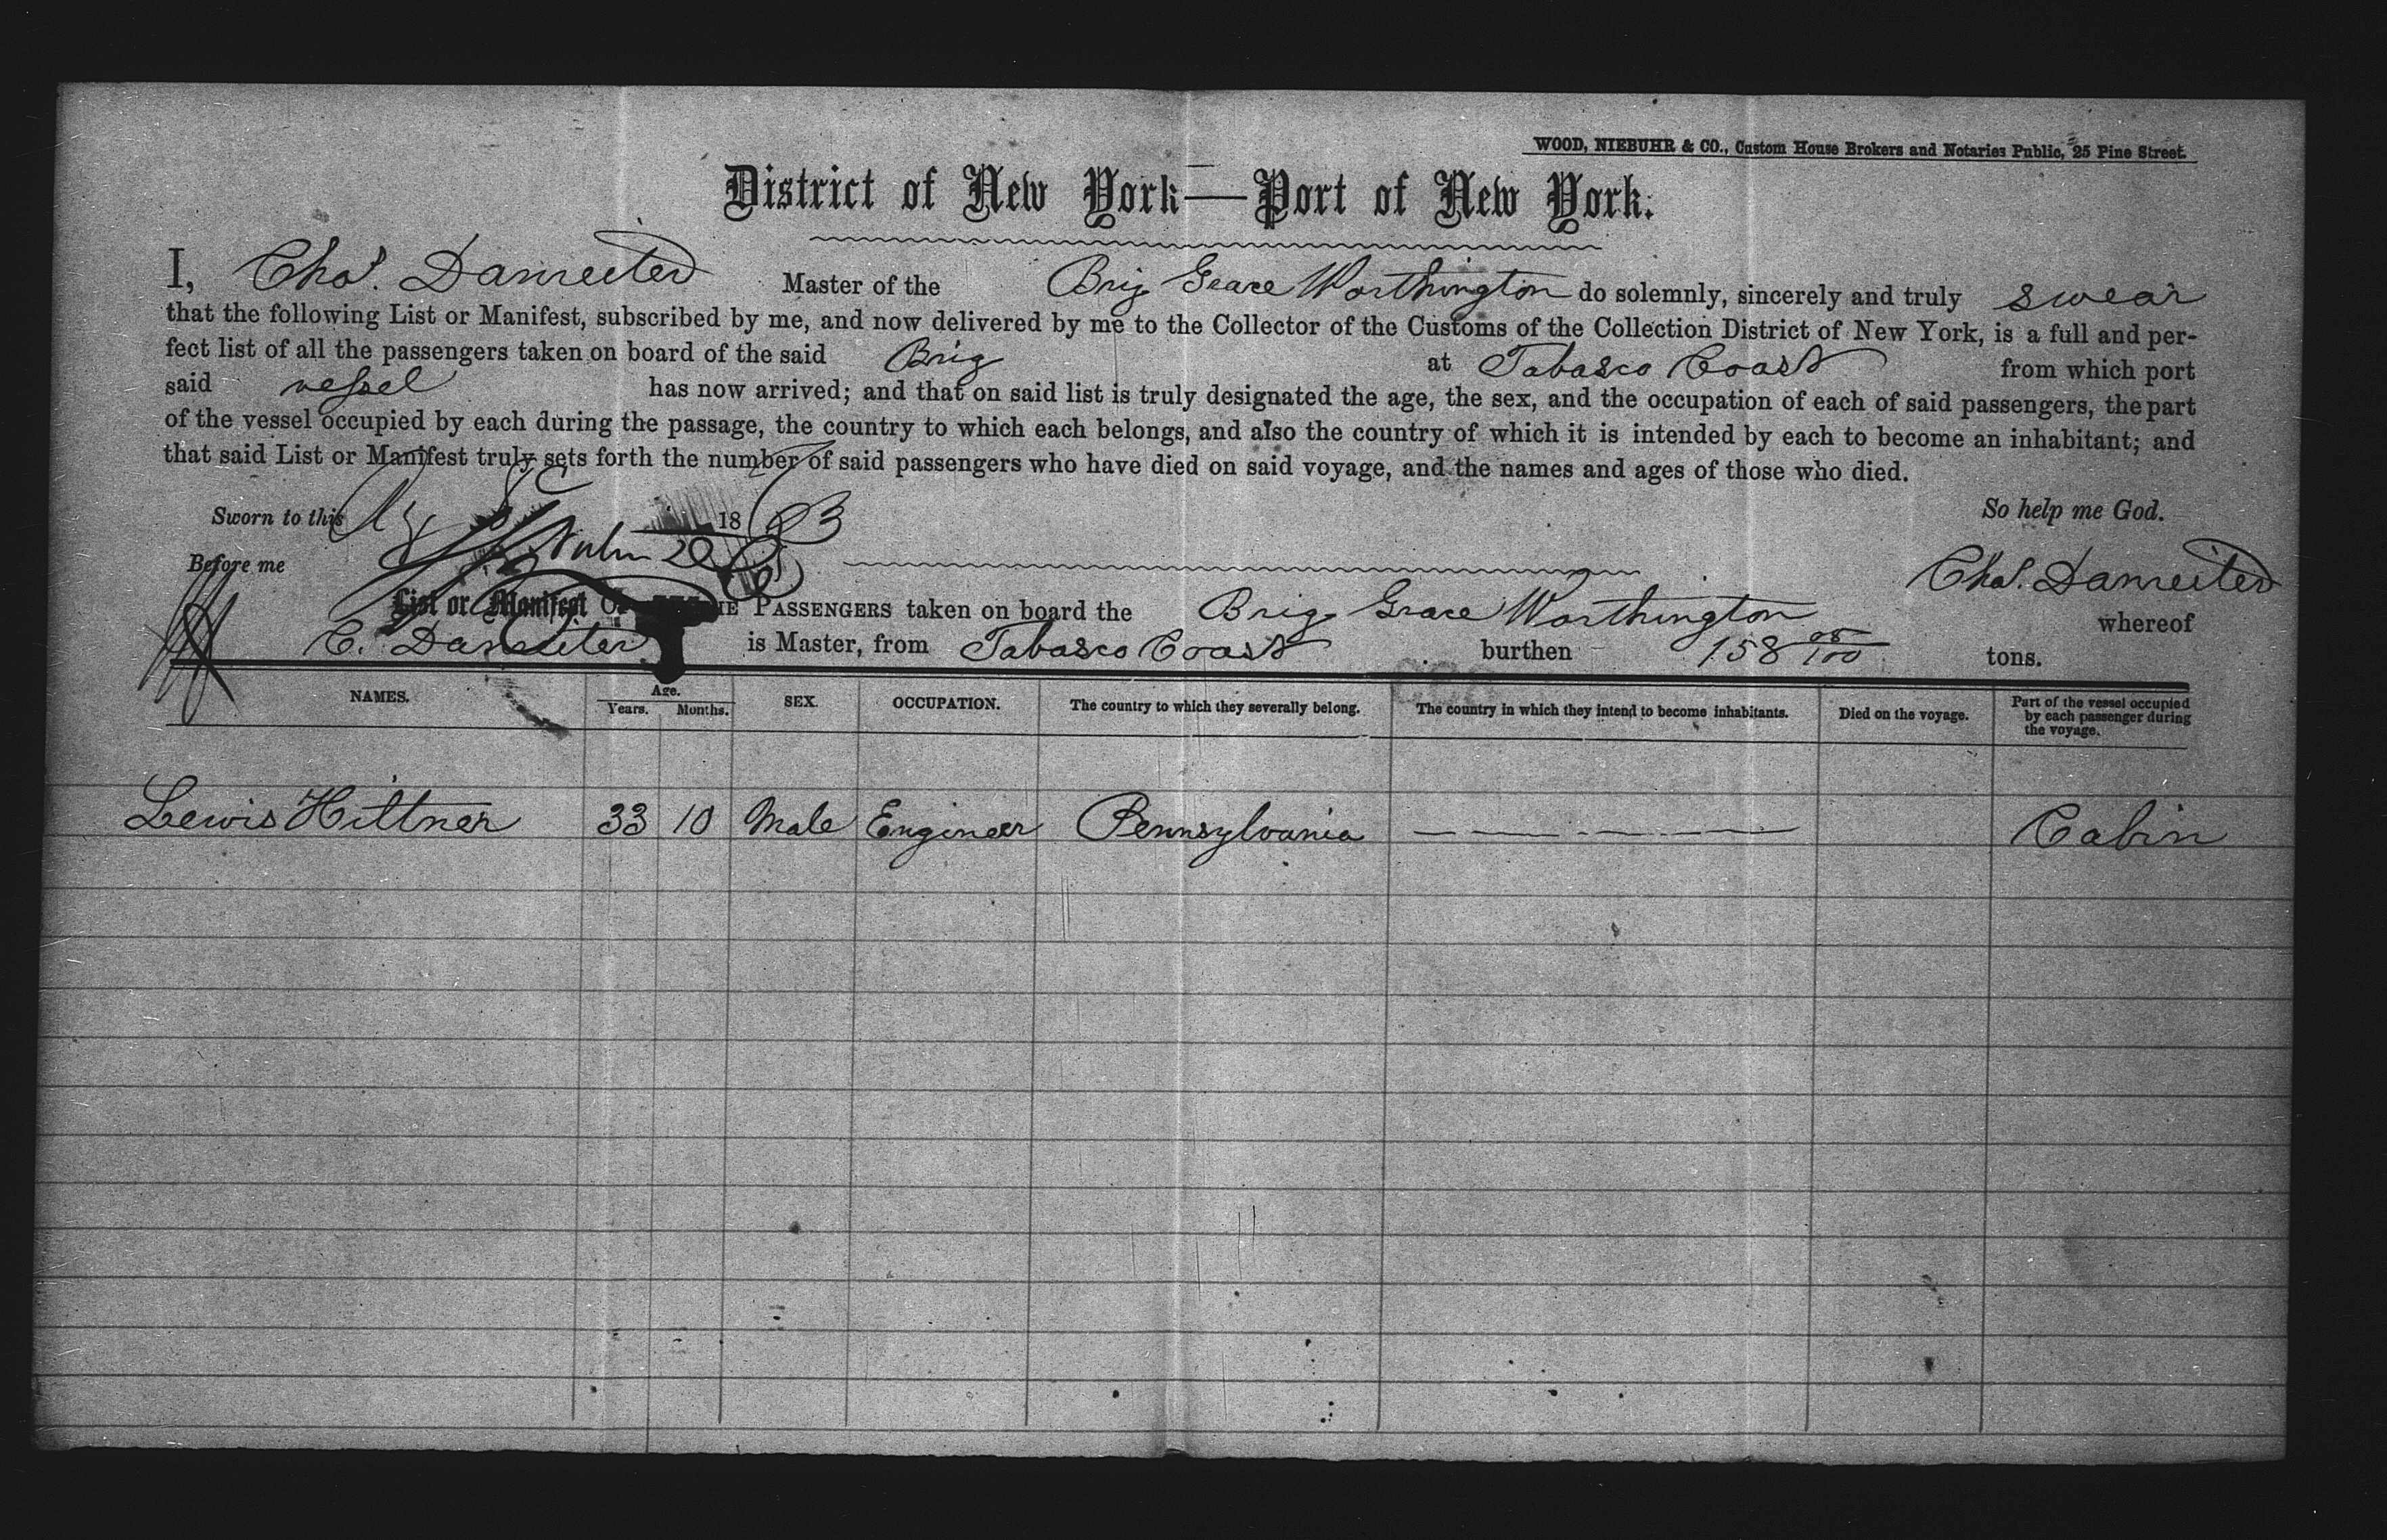 WOOD, NIEBUHR & CO., Custom House Brokers and Notaries Public, 25 Pine Street.
District of New York—Port of New York.
I, Chas. Danreiter Master of the Brig Grace Worthington do solemnly, sincerely and truly swear
that the following List or Manifest, subscribed by me, and now delivered by me to the Collector of the Customs of the Collection District of New York, is a full and per-
fect list of all the passengers taken on board of the said Brig at Tabasco Coast from which port
said vessel has now arrived; and that on said list is truly designated the age, the sex, and the occupation of each of said passengers, the part
of the vessel occupied by each during the passage, the country to which each belongs, and also the country of which it is intended by each to become an inhabitant; and
that said List or Manifest truly sets forth the number of said passengers who have died on said voyage, and the names and ages of those who died.
Sworn to this 18 83 So help me God.
Before me Chas. Danreiter
List or Manifest OF PASSENGERS taken on board the Brig Grace Worthington whereof
C. Danreiter is Master, from Tabasco Coast burthen 158 08/100 tons.
NAMES. Age. Years. Months. SEX. OCCUPATION. The country to which they severally belong. The country in which they intend to become inhabitants. Died on the voyage. Part of the vessel occupied by each passenger during the voyage.
Lewis Hittner 33 10 Male Engineer Pennsylvania — — — — — Cabin